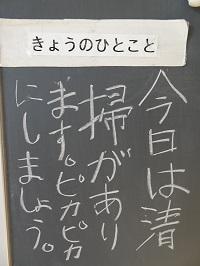 きょうのひとこと
今日は清
掃があり
ます。ピカピカ
にしましょう。